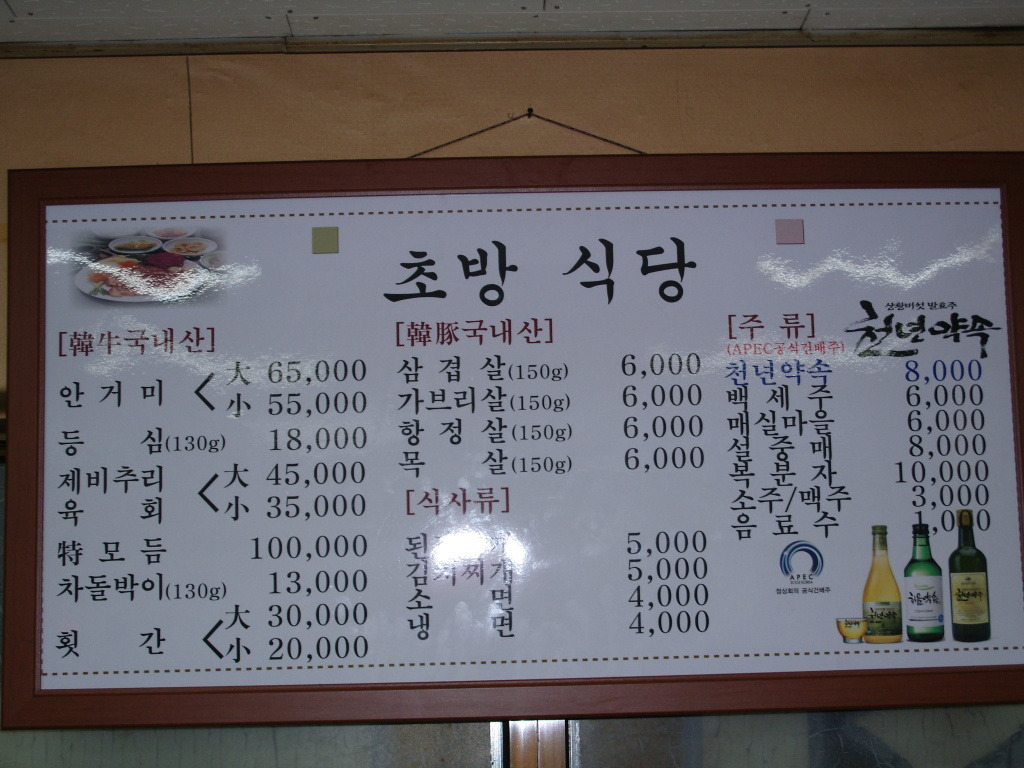 초방 식당
[韓牛국내산]
안거미 < 大 65,000
小 55,000
등 심(130g) 18,000
제비추리 < 大 45,000
육 회 小 35,000
特모듬 100,000
차돌박이(130g) 13,000
횟 간 < 大 30,000
小 20,000
[韓豚국내산]
삼겹살(150g) 6,000
가브리살(150g) 6,000
항정살(150g) 6,000
목 살(150g) 6,000
[식사류]
된 5,000
김치찌개 5,000
소 면 4,000
냉 면 4,000
[주 류]
(APEC공식건배주)
상황버섯 발효주
천년약속
천년약속 8,000
백세주 6,000
매실마을 6,000
설중매 8,000
복분자 10,000
소주/맥주 3,000
음료수 1,000
APEC
정상회의 공식건배주
천년약속